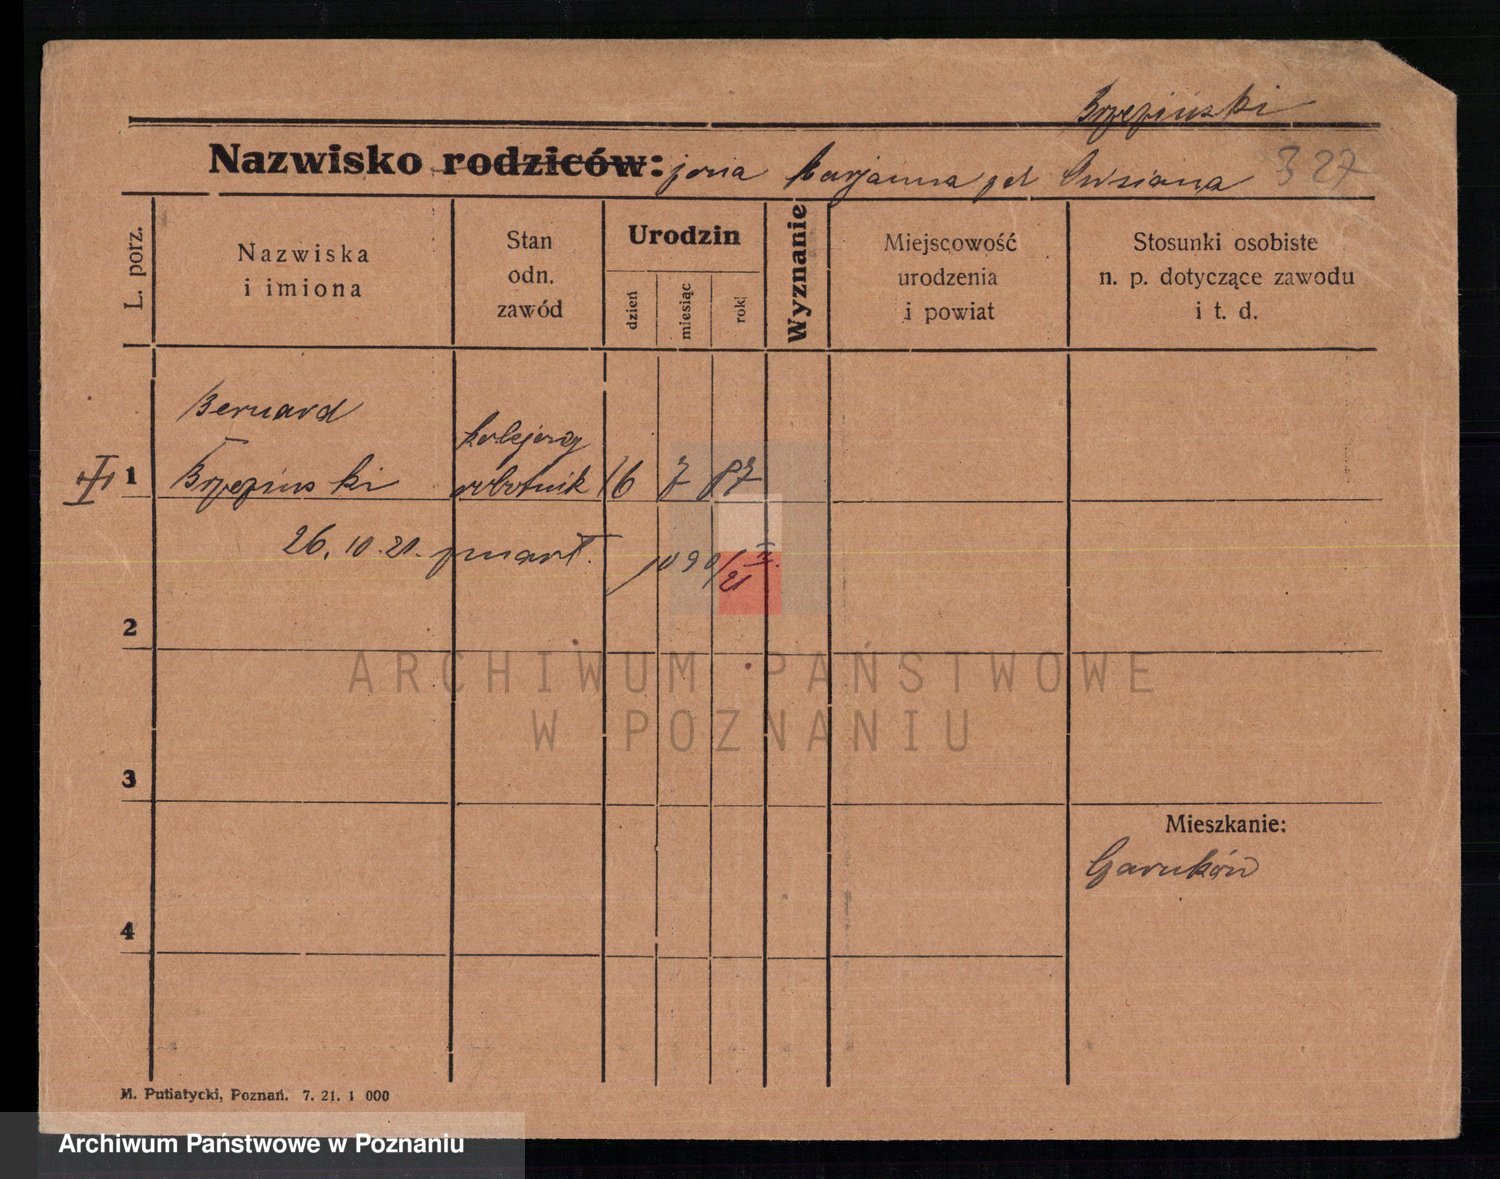 Brzeziński
Nazwisko rodziców: żona Marjanna 327
L. porz.
Nazwiska
i imiona
Stan
odn.
zawód
Urodzin
dzień
miesiąc
rok
Wyznanie
Miejscowość
urodzenia
i powiat
Stosunki osobiste
n. p. dotyczące zawodu
i t. d.
Bernard
Brzeziński
kolejowy
robotnik
16 7 87
III
1
26. 10. 21. zmarł.
1090/21 II.
2
3
4
Mieszkanie:
ARCHIWUM PAŃSTWOWE
W POZNANIU
M. Putiatycki, Poznań. 7. 21. 1 000
Archiwum Państwowe w Poznaniu